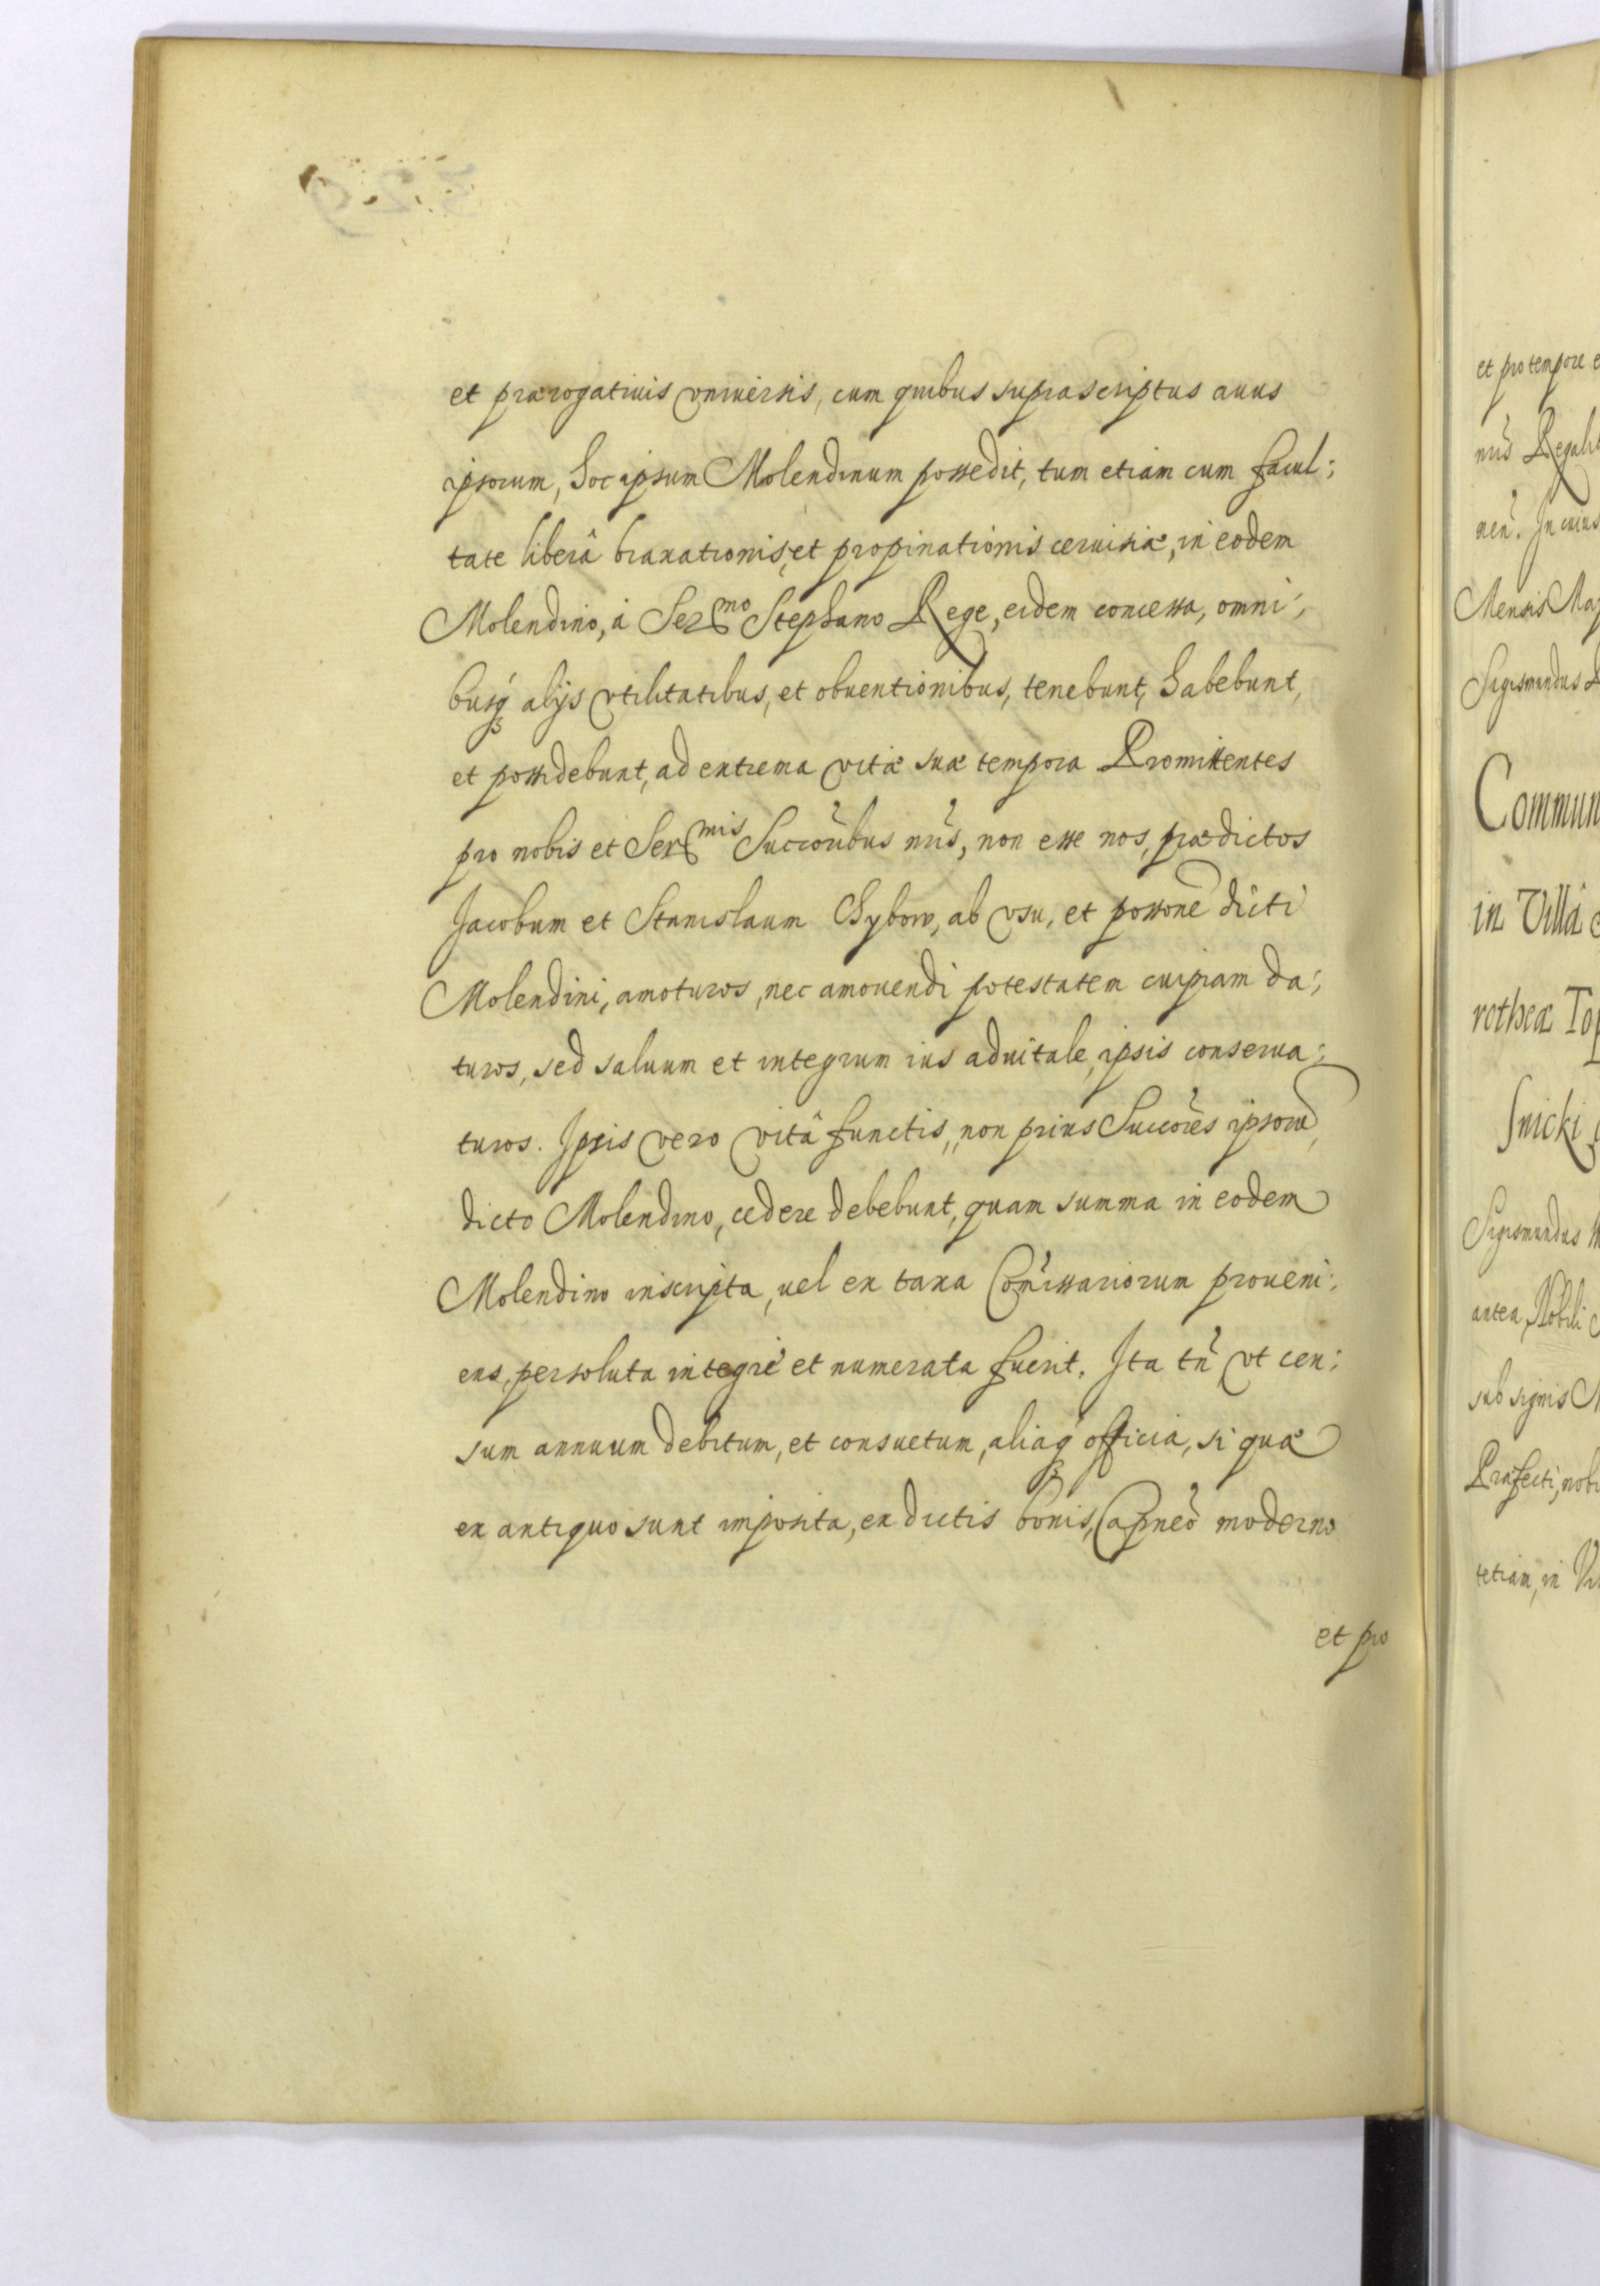 et prærogatiuis vniuersis, cum quibus suprascriptus auus
ipsorum, hoc ipsum Molendinum possedit, tum etiam cum facul:
tate liberâ braxationis, et propinationis ceruisiæ, in eodem
Molendino, à Ser^mo Stephano Rege, eidem concessa, omni:
busq alijs vtilitatibus, et obuentionibus, tenebunt, habebunt,
et possidebunt, ad extrema vitæ suæ tempora Promittentes
pro nobis et Ser^mis Succoribus nris, non esse nos, prædictos
Jacobum et Stanislaum Chybow, ab vsu, et possone dicti
Molendini, amoturos, nec amouendi potestatem cuipiam da:
turos, sed saluum et integrum ius aduitale, ipsis conserua:
turos. Ipsis vero vitâ functis, non prius Succores ipsorũ,
dicto Molendino, cedere debebunt, quam summa in eodem
Molendino inscripta, vel ex taxa Comissariorum proueni:
ens, persoluta integrè et numerata fuerit. Ita tñ vt cen:
sum annuum debitum, et consuetum, aliaq officia, si quæ
ex antiquo sunt imposita, ex dictis bonis, Capneo moderno
et pro
et pro tempore e
nris Regalib
nen. In cuius
Mensis Maj
Sigismundus R
Commun
in Villâ
rotheæ Top
snicki
Sigismundus
antea, Nobili
sub signis
Præfecti, nobi
tetiam, in